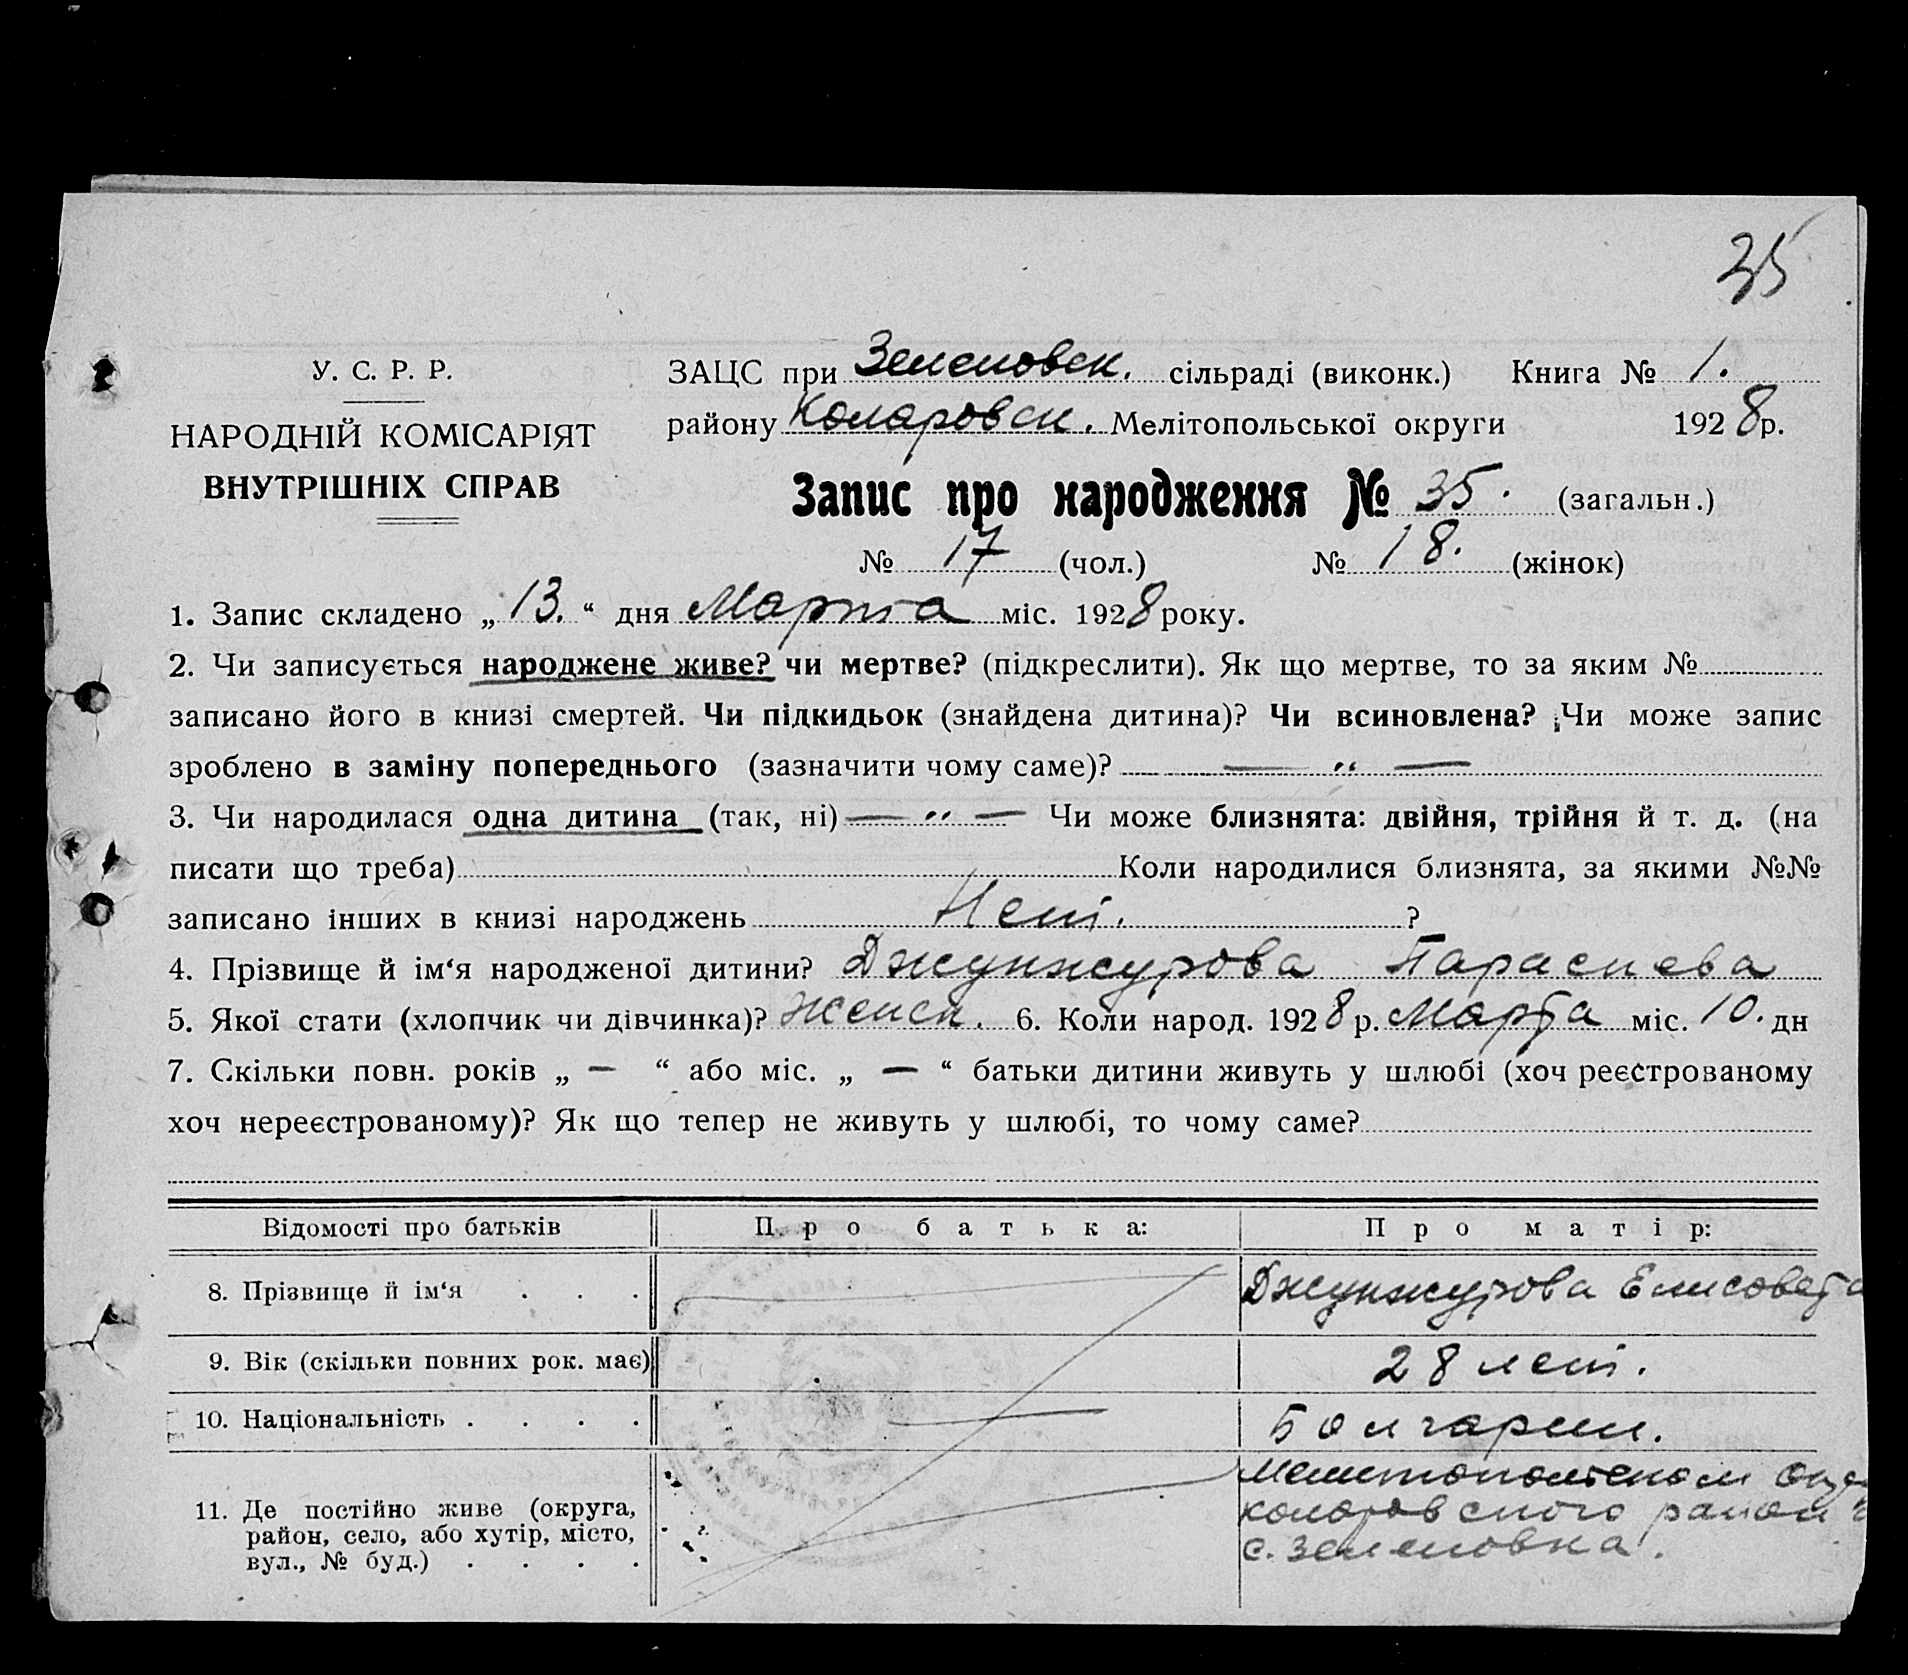 35
У. С. Р. Р.
НАРОДНІЙ КОМІСАРІЯТ
ВНУТРІШНІХ СПРАВ
ЗАЦС при Зеленовск. сільраді (виконк.) Книга № 1.
району Коларовск. Мелітопольської округи 1928 р.
Запис про народження № 35. (загальн.)
№ 17 (чол.) № 18. (жінок)
1. Запис складено „ 13. “ дня Марта міс. 1928 року.
2. Чи записується народжене живе? чи мертве? (підкреслити). Як що мертве, то за яким №
записано його в книзі смертей. Чи підкидьок (знайдена дитина)? Чи всиновлена? Чи може запис
зроблено в заміну попереднього (зазначити чому саме)? — „ —
3. Чи народилася одна дитина (так, ні) — „ — Чи може близнята: двійня, трійня й т. д. (на
писати що треба) Коли народилися близнята, за якими №№
записано інших в книзі народжень Нет. ?
4. Прізвище й ім‘я народженої дитини? Джунжурова Параскева
5. Якої стати (хлопчик чи дівчинка)? Женск. 6. Коли народ. 1928 р. Марта міс. 10. дн
7. Скільки повн. років „ — “ або міс. „ — “ батьки дитини живуть у шлюбі (хоч реєстрованому
хоч нереєстрованому)? Як що тепер не живуть у шлюбі, то чому саме?
Відомості про батьків Про батька: Про матір:
8. Прізвище й ім‘я . . . Джунжурова Елисовета
9. Вік (скільки повних рок. має) 28 лет.
10. Національність . . . . — Болгарин.
11. Де постійно живе (округа,
район, село, або хутір, місто,
вул., № буд.) . . . .
Мелитопольском
Коларовского район
с. Зеленовка.